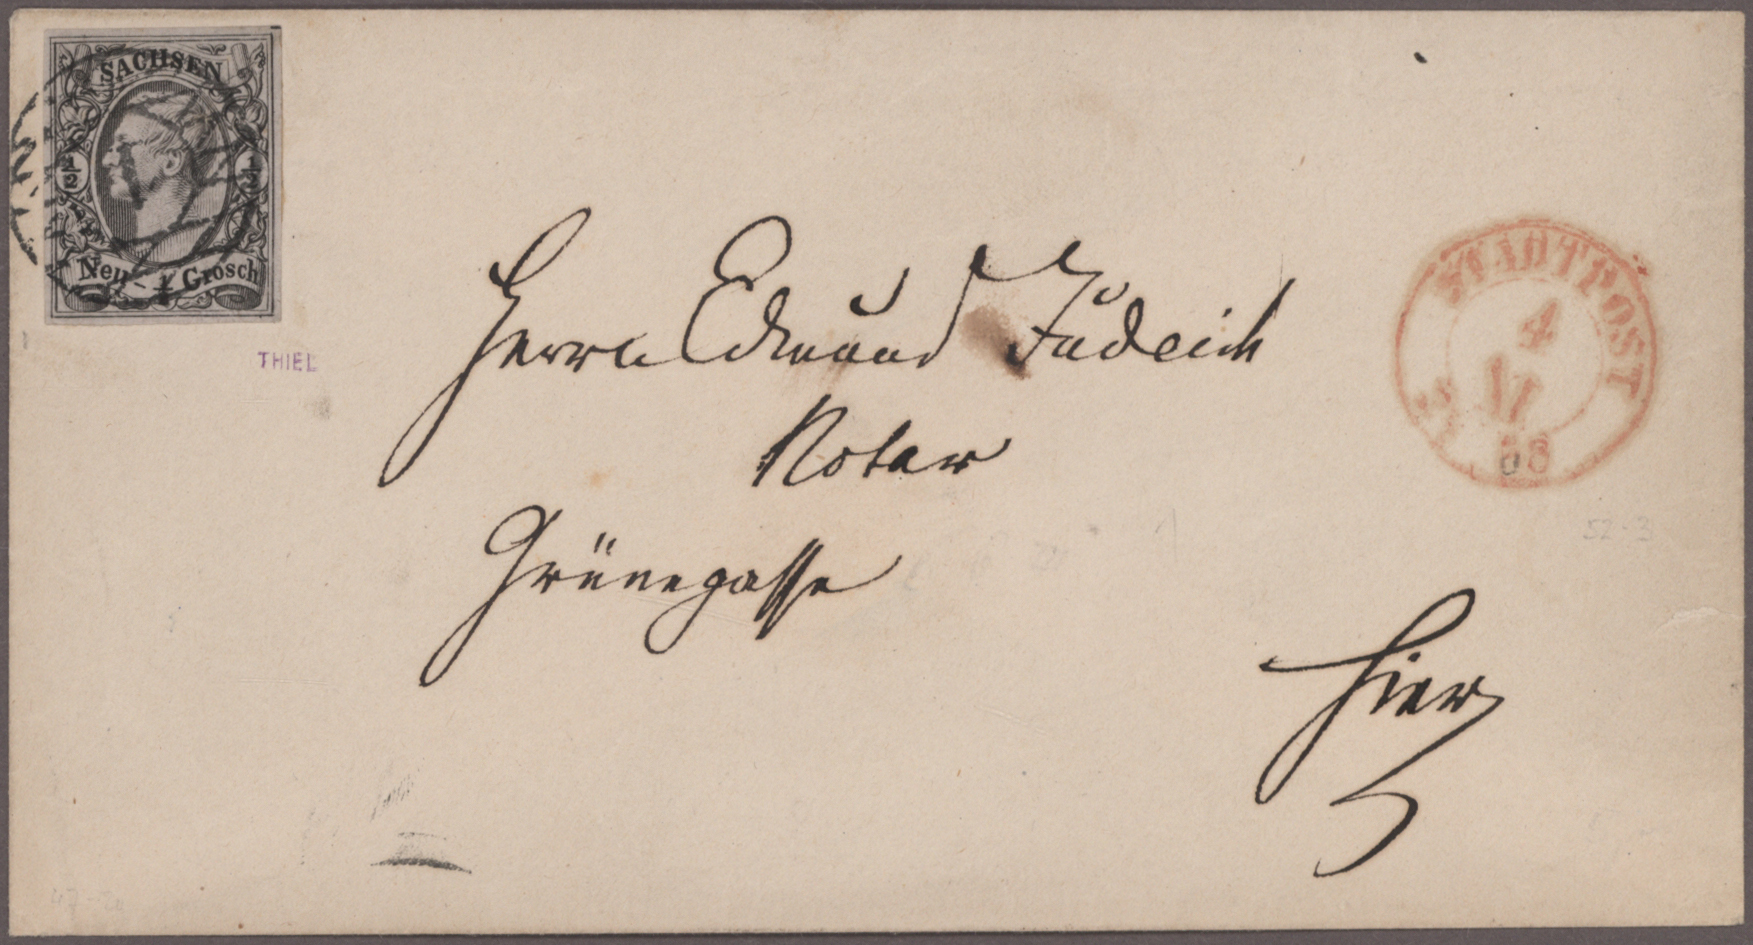 SACHSEN
1/2 1/2
Neu-Grosch
THIEL
Herrn Edmund Judeich
Notar
Grünegasse
Hier
STADTPOST
4
VI
58